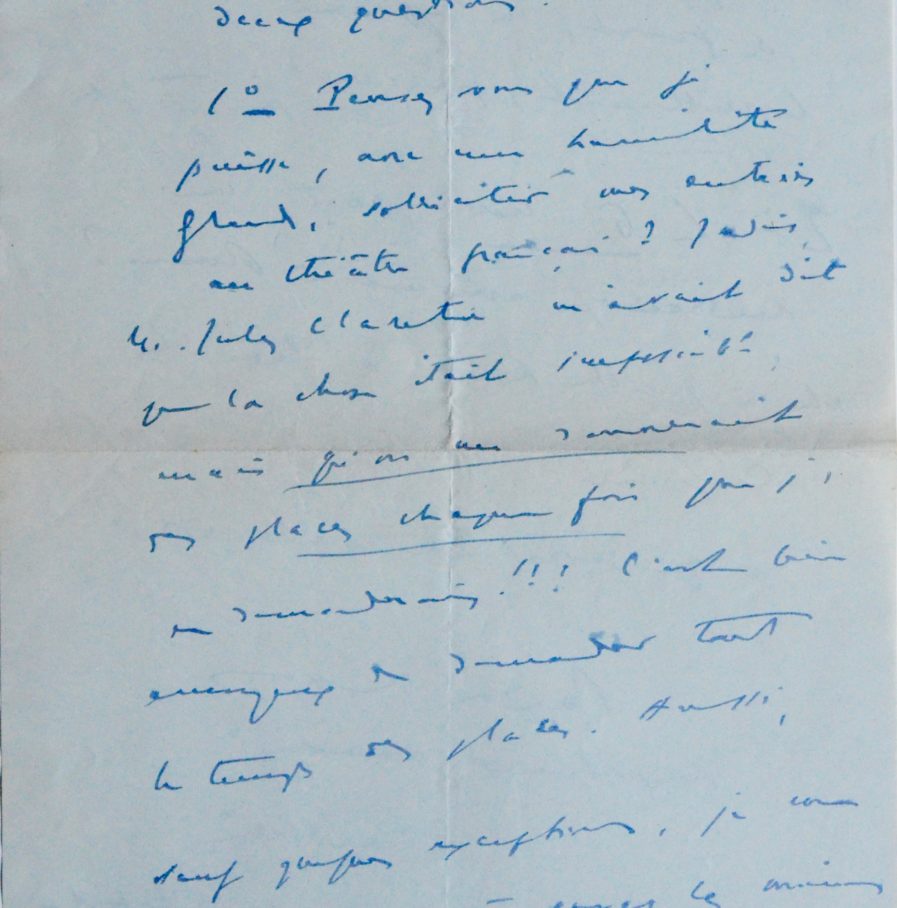 deux questions.
1° Pensez vous que je
puisse, avec une humilité
grande, solliciter mes entrées
au théâtre français ? Jadis,
M. Jules Claretie m'avait dit
que la chose était impossible
mais qu'on me donnerait
des places chaque fois que j'
en demanderais !!! C'est bien
ennuyeux de demander tout
le temps des places. Aussi,
sauf quelques exceptions, je
les